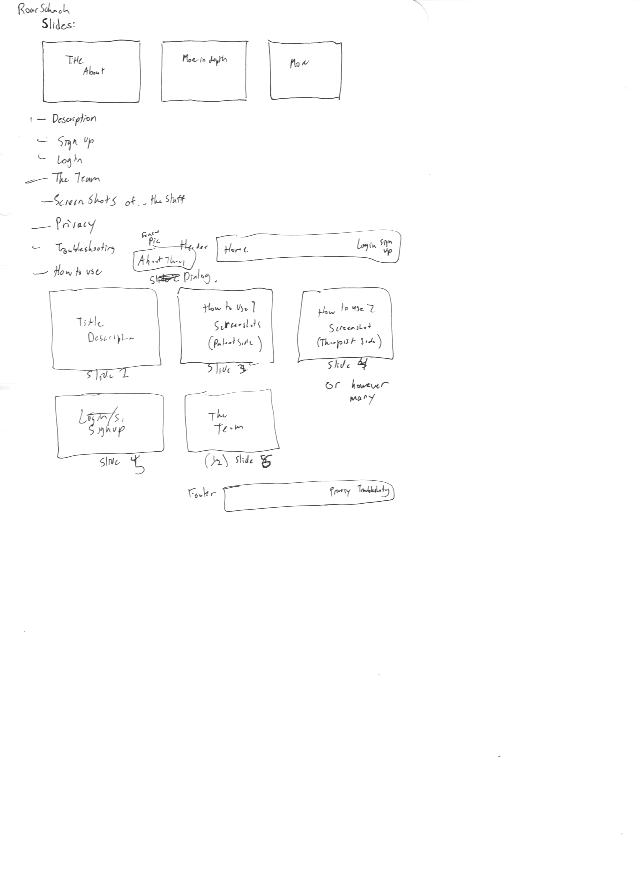 Slides:
Title
About
More in depth
More
- Description
- Sign up
- Login
- The Team
- Screenshots of.. the stuff
- Privacy
- Troubleshooting
- How to use
Pic
Header
Home
Login Sign
up
About
Dialog.
Title
Descripti
Slide 1
How to use?
Screenshots
(Patient Side)
Slide
How to use?
Screenshot
(Therapist Side)
Slide
or however
many
Login/
Signup
Slide
The
Team
Slide
Footer
Privacy Troubleshooting